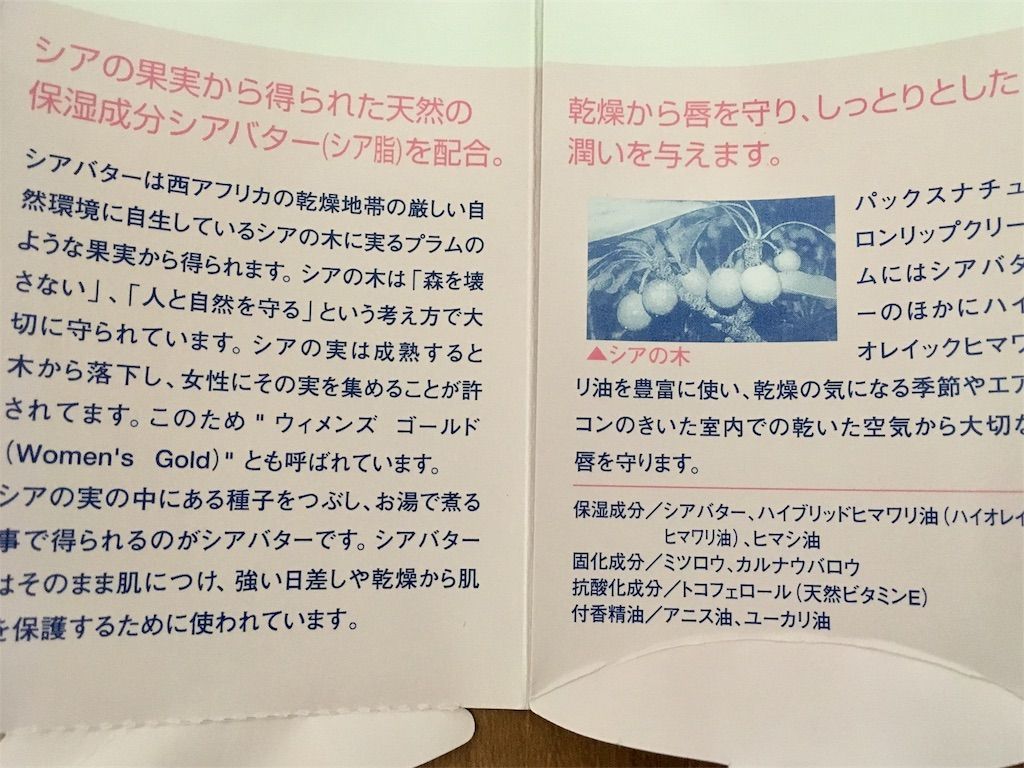 シアの果実から得られた天然の
保湿成分シアバター(シア脂)を配合。
シアバターは西アフリカの乾燥地帯の厳しい自
然環境に自生しているシアの木に実るプラムの
ような果実から得られます。シアの木は「森を壊
さない」、「人と自然を守る」という考え方で大
切に守られています。シアの実は成熟すると
木から落下し、女性にその実を集めることが許
されてます。このため" ウィメンズ ゴールド
(Women's Gold)" とも呼ばれています。
シアの実の中にある種子をつぶし、お湯で煮る
事で得られるのがシアバターです。シアバター
はそのまま肌につけ、強い日差しや乾燥から肌
を保護するために使われています。
乾燥から唇を守り、しっとりとした
潤いを与えます。
▲シアの木
パックスナチュ
ロンリップクリー
ムにはシアバタ
ーのほかにハイ
オレイックヒマワ
リ油を豊富に使い、乾燥の気になる季節やエア
コンのきいた室内での乾いた空気から大切な
唇を守ります。
保湿成分／シアバター、ハイブリッドヒマワリ油(ハイオレイ
ヒマワリ油)、ヒマシ油
固化成分／ミツロウ、カルナウバロウ
抗酸化成分／トコフェロール(天然ビタミンE)
付香精油／アニス油、ユーカリ油